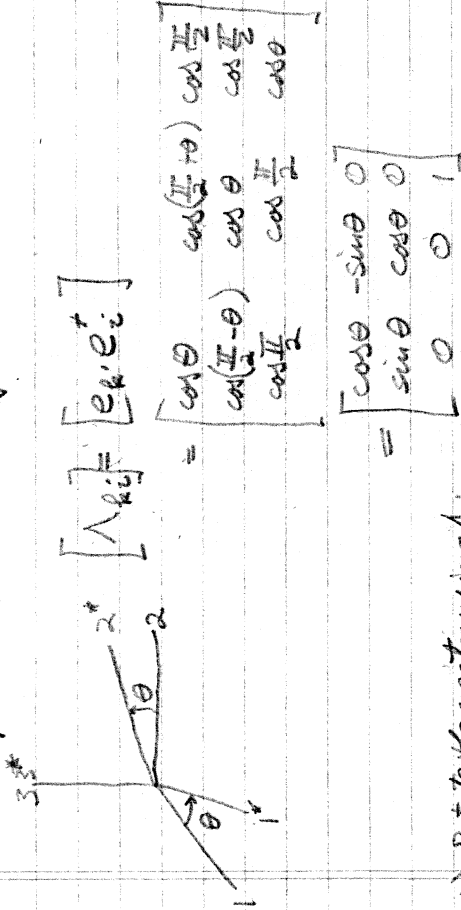 3 3*
2*
θ
2
θ
1*
1
[Λₖᵢ] = [eₖ·eᵢ⁺]
= [cosθ cos(π/2+θ) cos π/2
cos(π/2-θ) cosθ cos π/2
cos π/2 cos π/2 cosθ]
= [cosθ -sinθ 0
sinθ cosθ 0
0 0 1]